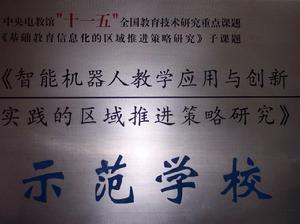 中央电教馆"十一五"全国教育技术研究重点课题
《基础教育信息化的区域推进策略研究》子课题
《智能机器人教学应用与创新
实践的区域推进策略研究》
示范学校